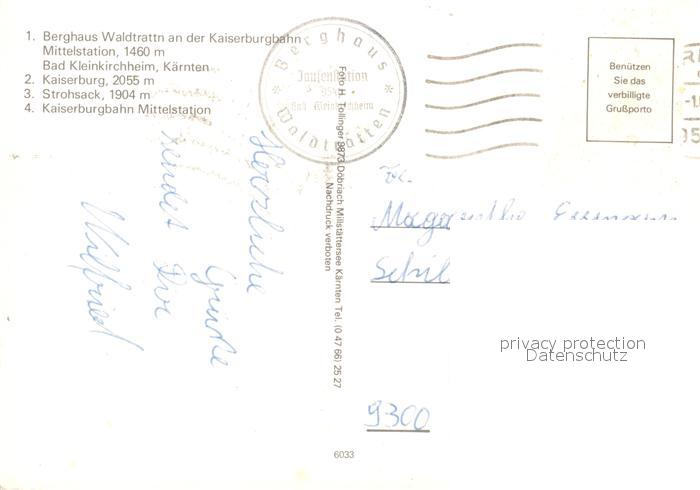 1. Berghaus Waldtrattn an der Kaiserburgbahn
Mittelstation, 1460 m
Bad Kleinkirchheim, Kärnten
2. Kaiserburg, 2055 m
3. Strohsack, 1904 m
4. Kaiserburgbahn Mittelstation
* Berghaus *
Jausenstation
Bad Kleinkirchheim
Waldtratten
Benützen
Sie das
verbilligte
Grußporto
Herzliche
Grüße
sendet Dir
Wilfried
Foto H. Tollinger 9873 Döbriach Millstättersee Kärnten Tel. (0 47 66) 25 27
Nachdruck verboten
9300
privacy protection
Datenschutz
6033